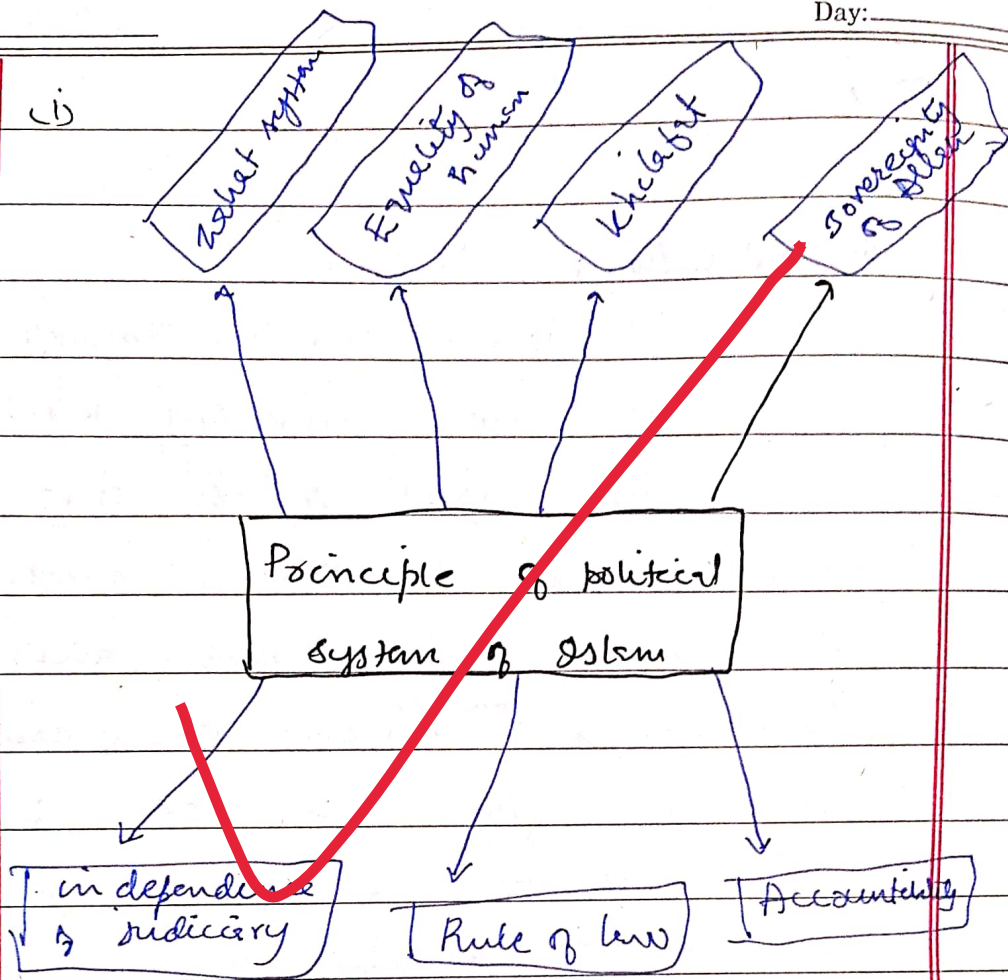 Day:
(i)
system
Equality of
human
Khilafat
Sovereignity
of Allah
Principle of political
system of Islam
independence
of judiciary
Rule of law
Accountibility